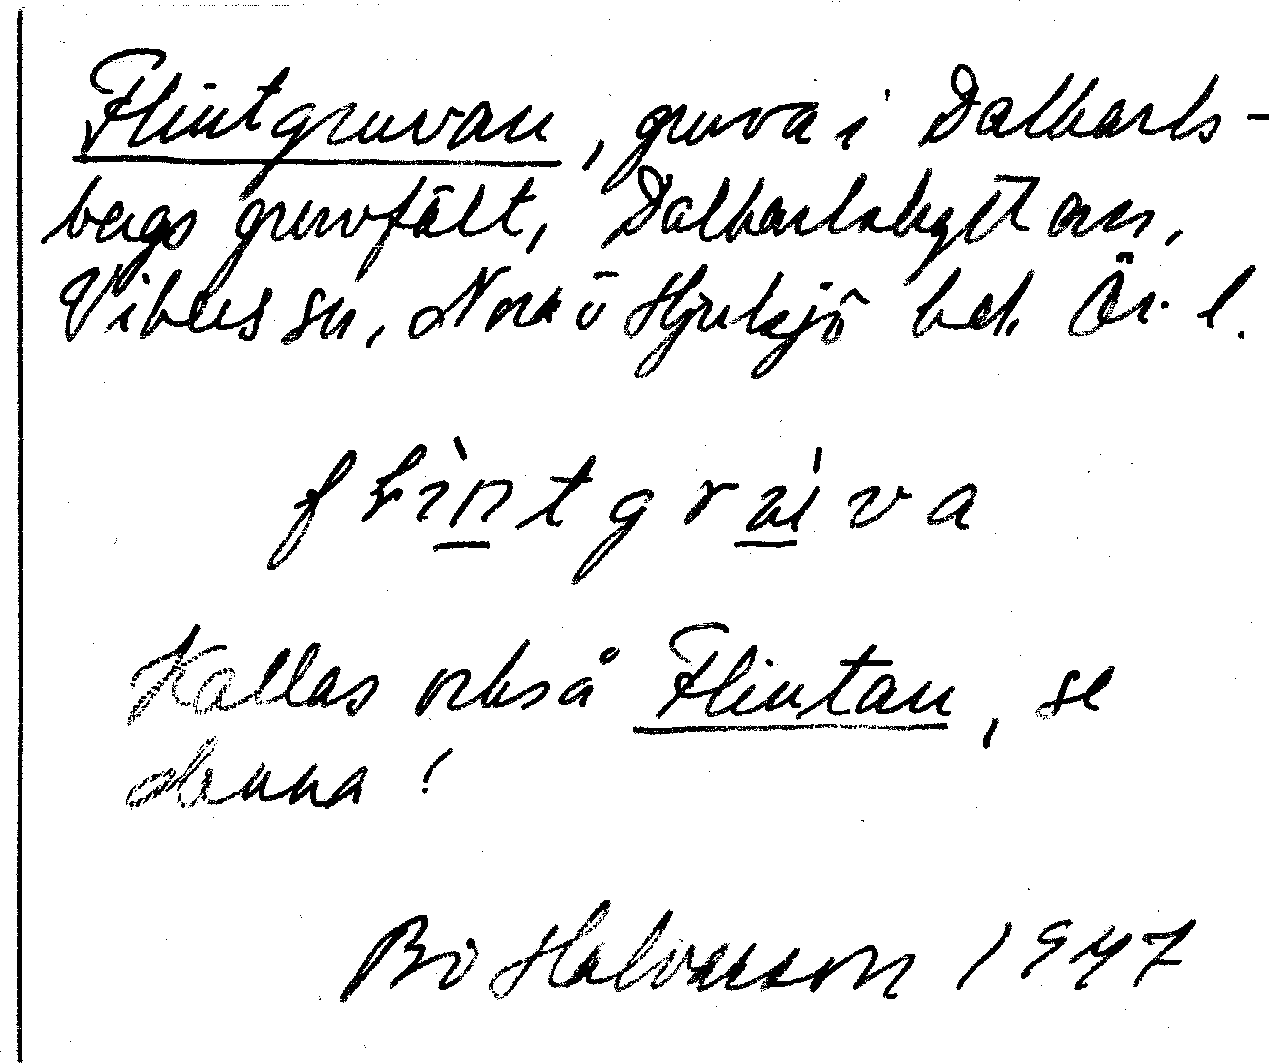 Flintgruvan, gruva i Dalkarls-
bergs gruvfält, Dalkarlshyttan,
Vikers sn, Nora o Hjulsjö bek. Ör. l.
flìntgrúva
Kallas också Flintan, se
denna!
Bo Halvarson 1947